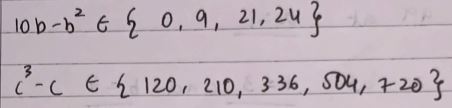 10b-b² ∈ { 0, 9, 21, 24 }
c³-c ∈ { 120, 210, 336, 504, 720 }